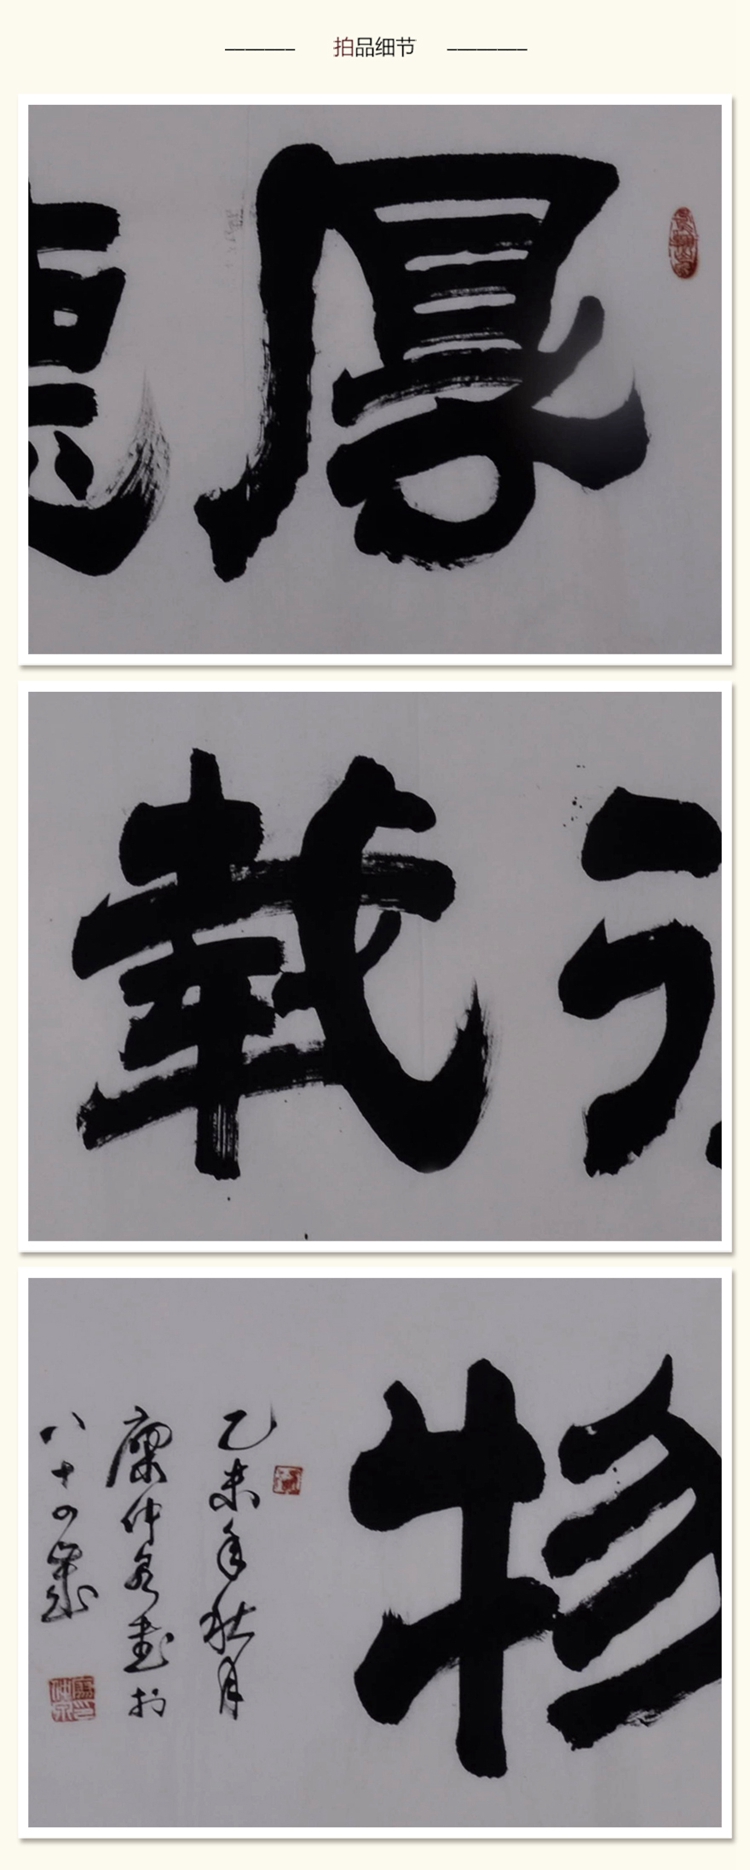 拍品细节
厚德
載
物
乙未年秋月
仲書於
八十四歲